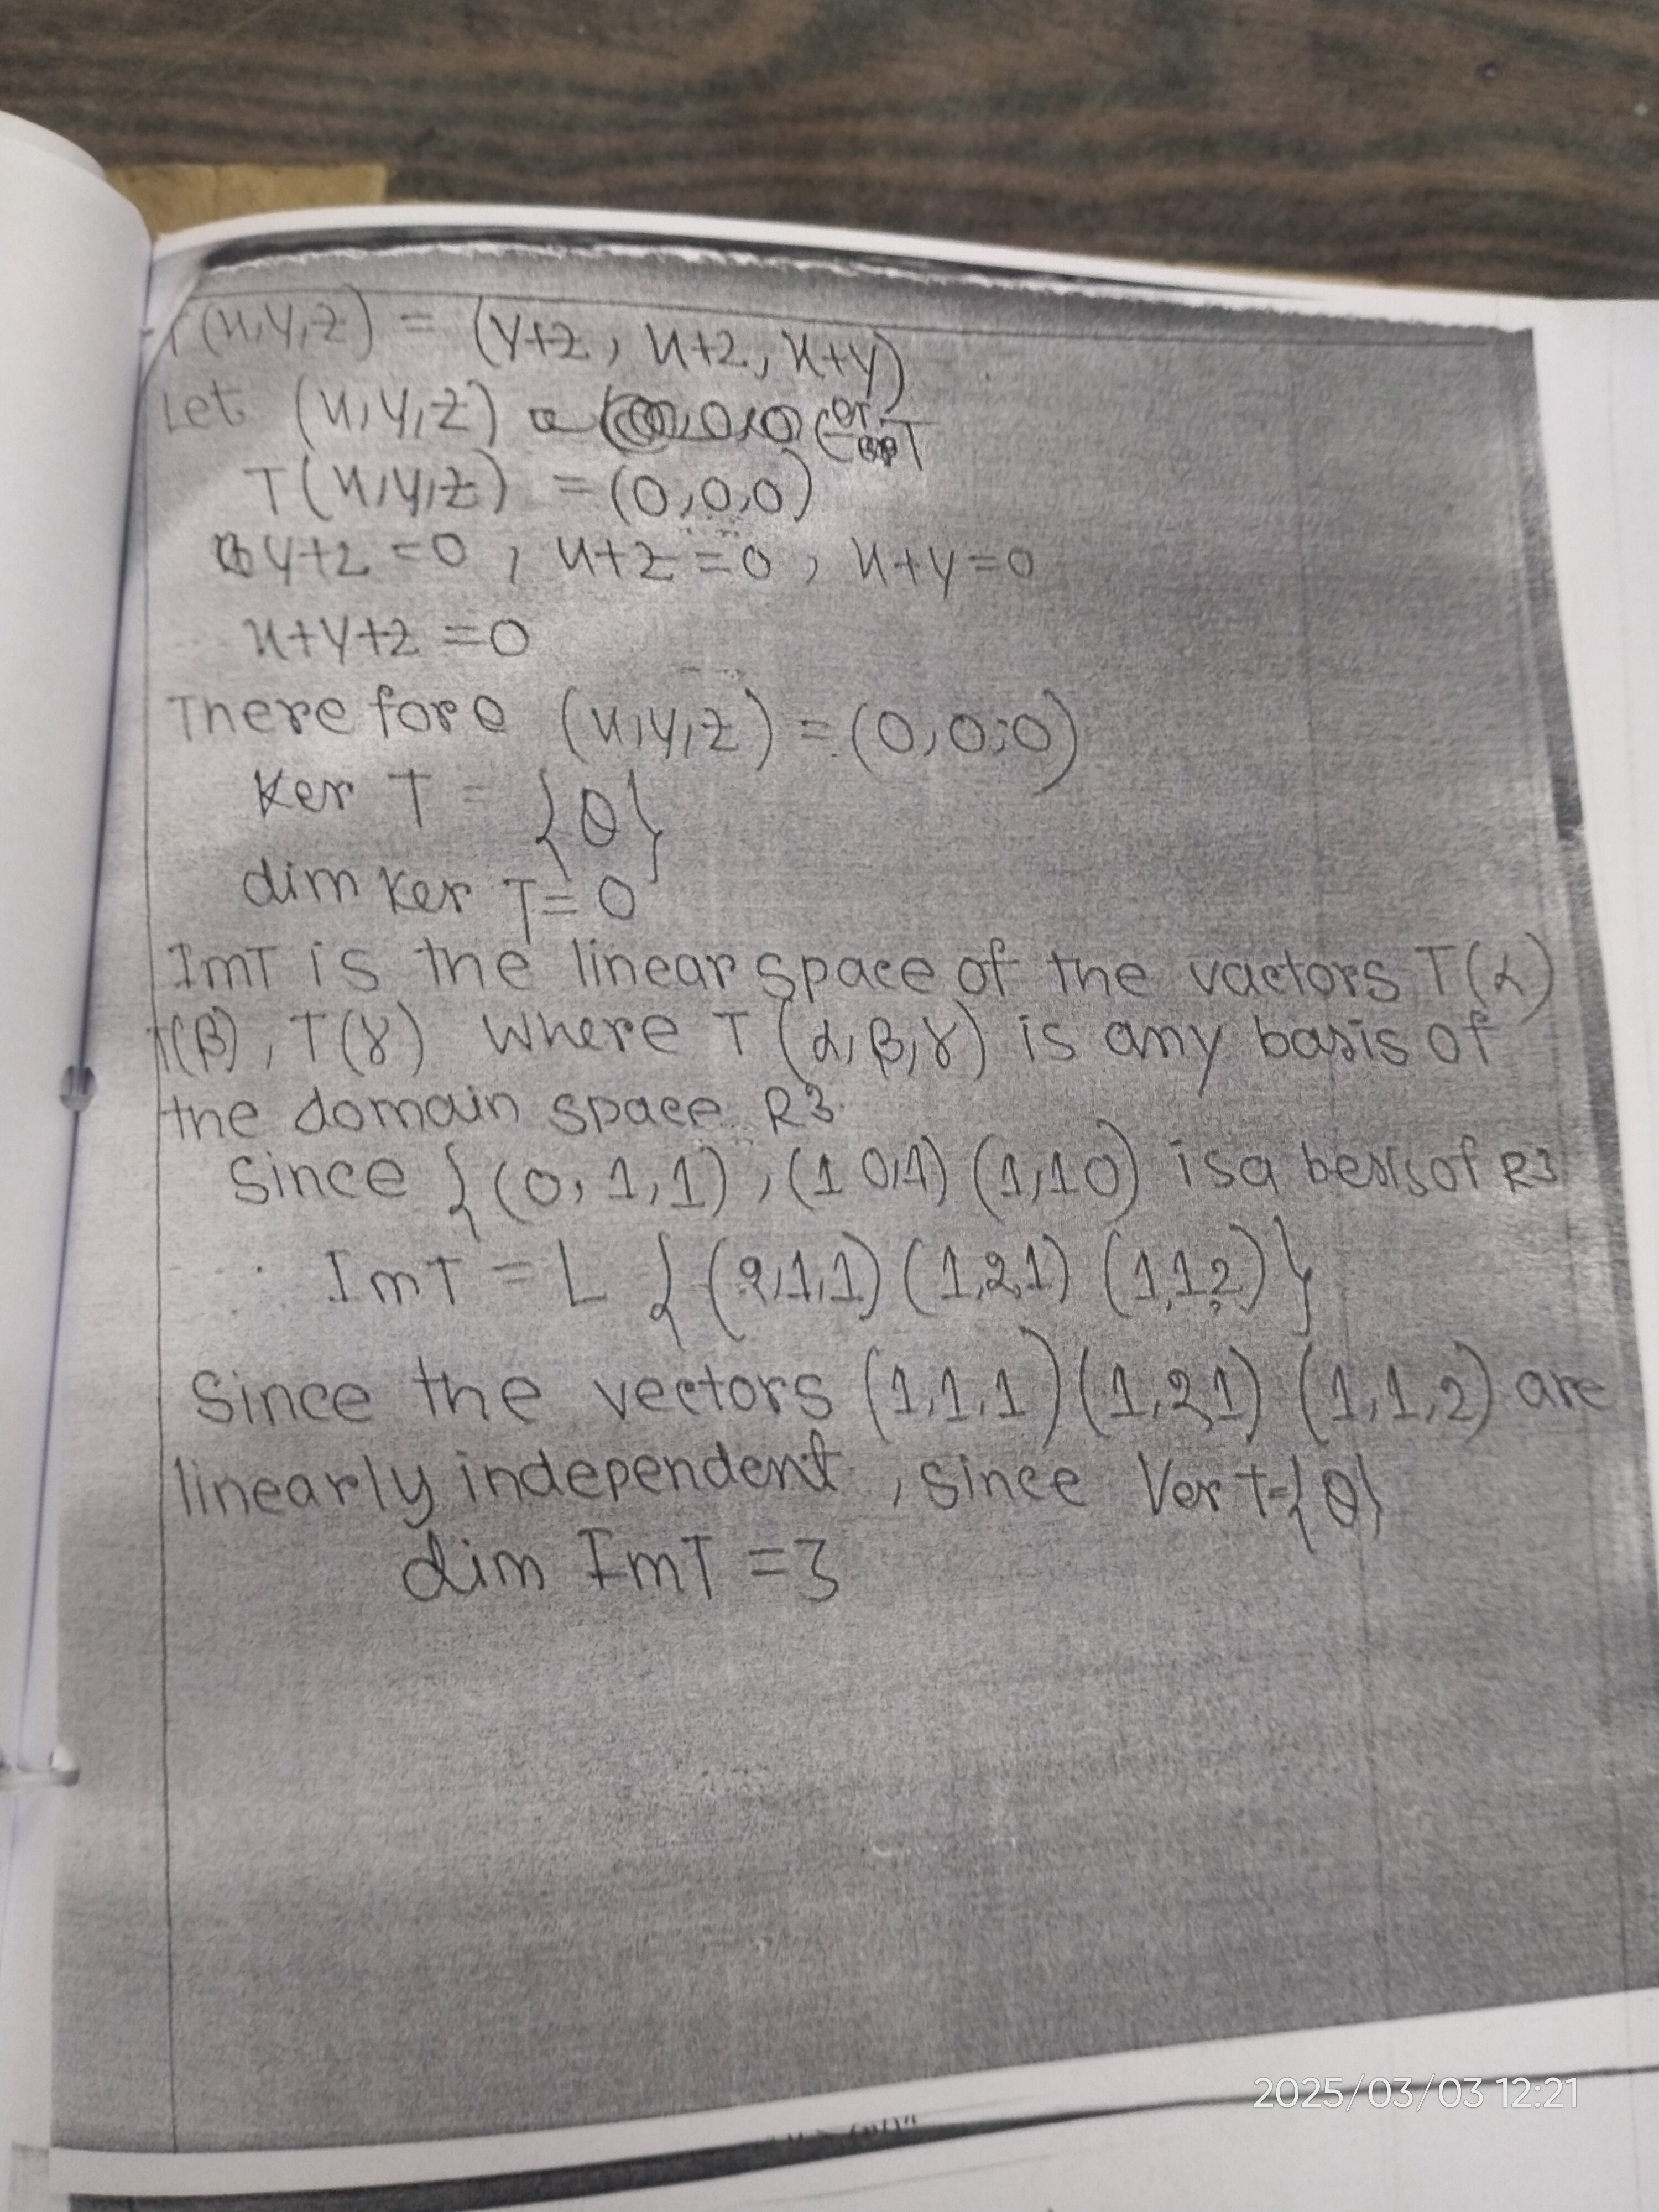 T(x,y,z) = (y+z, x+z, x+y)
Let (x,y,z) ker T
T(x,y,z) = (0,0,0)
y+z =0, x+z =0, x+y=0
x+y+z =0
There fore (x,y,z) = (0,0,0)
Ker T = {θ}
dim Ker T = 0
ImT is the linear space of the vactors T(α)
T(β), T(γ) Where T(α,β,γ) is any basis of
the domain space R3.
Since {(0,1,1), (1 0,1) (1,1 0) is a besis of R3
ImT = L {(2,1,1) (1,2,1) (1,1,2)}
Since the vectors (1,1,1) (1,2,1) (1,1,2) are
linearly independent, since Ver T={θ}
dim ImT =3
2025/03/03 12:21